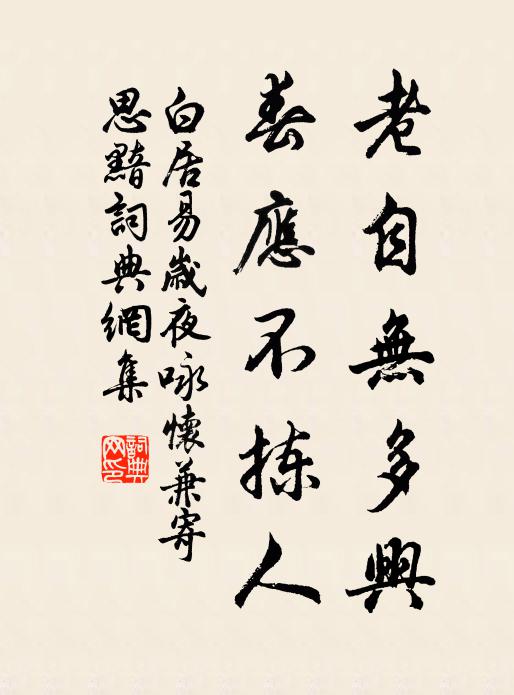 老自無多興
春應不揀人
白居易歲夜咏懷兼寄
思黯詞典網集
詞典
网印